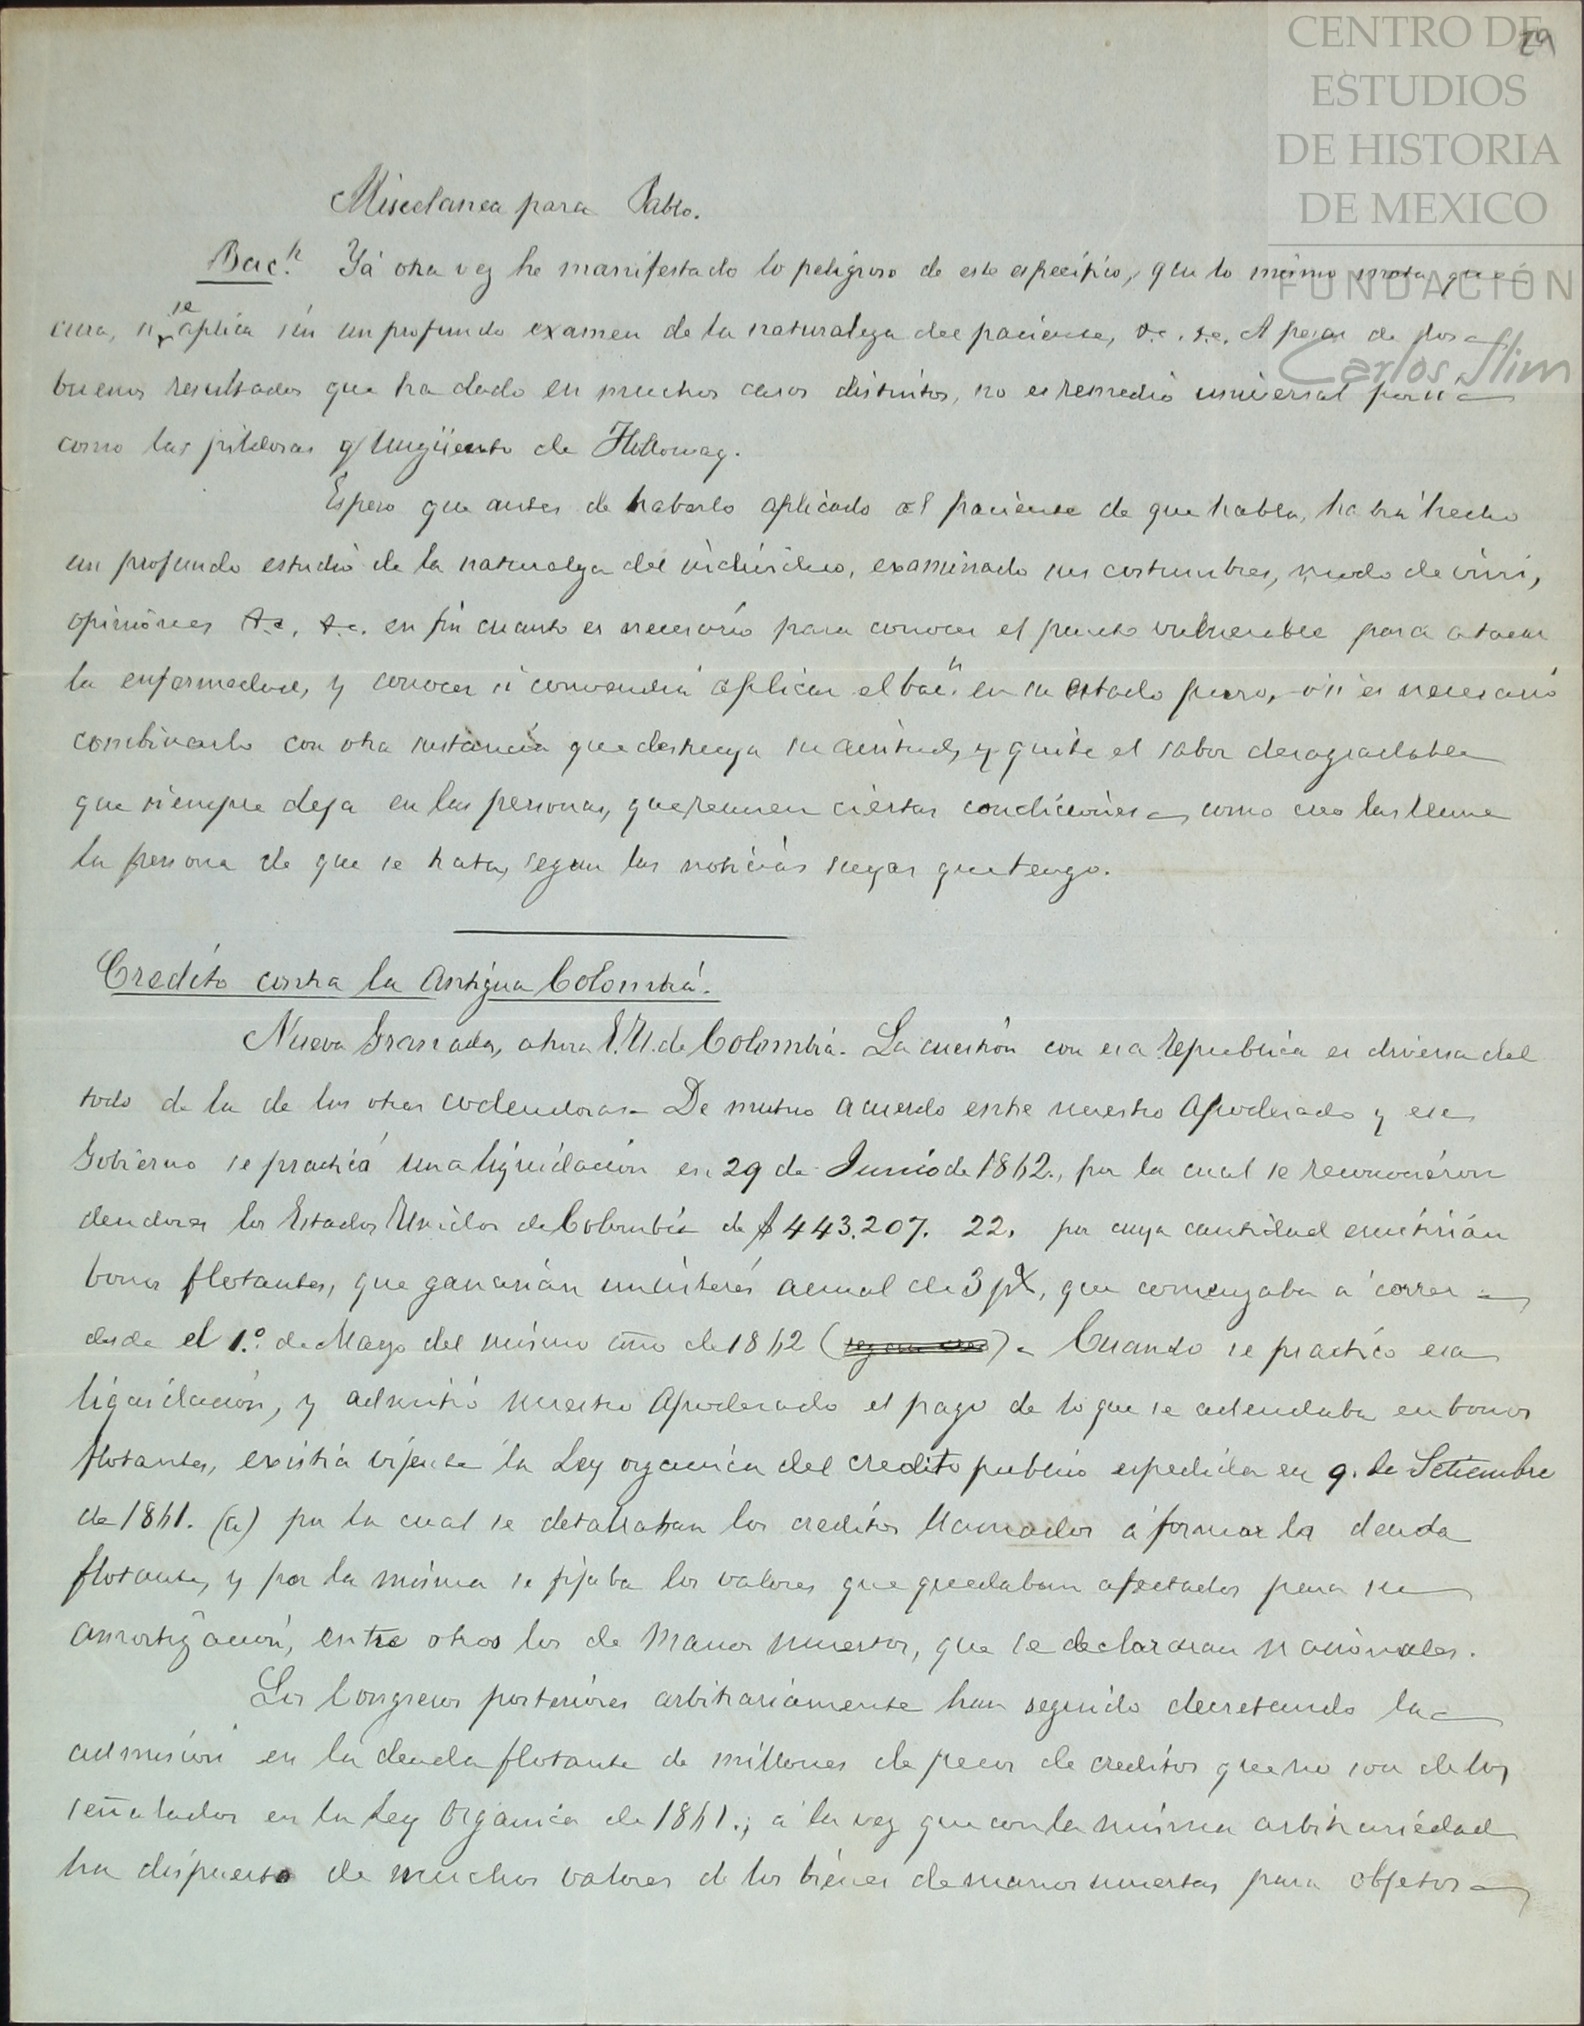 CENTRO DE
ESTUDIOS
DE HISTORIA
DE MEXICO
FUNDACIÓN
Carlos Slim
29
Miscelanea para Pablo.
Bac.n Yá otra vez he manifestado lo peligroso de este especifico, que lo mismo mata que
cura, si se aplica sin un profundo examen de la naturaleza del paciente, &c. &c. A pesar de los
buenos resultados que ha dado en muchos casos distintos, no es remedio universal para
como las pildoras y Ungüento de Holloway.
Espero que antes de haberlo aplicado al paciente de que habla, habrá hecho
un profundo estudio de la naturaleza del individuo, examinado sus costumbres, modo de vivir,
opiniones &c. &c. en fin cuanto es necesario para conocer el punto vulnerable para atacar
la enfermedad, y conocer si convendrá aplicar el bac.n en su estado puro, ó si es necesario
combinarlo con otra sustancia que destruya su acritud, y quite el sabor desagradable
que siempre deja en las personas, que reunen ciertas condiciones, como creo las reune
la persona de que se trata, segun las noticias suyas que tengo.
Credito contra la Antigua Colombiá.
Nueva Granada, ahora E.U. de Colombia. La cuestión con esa Republica es diversa del
todo de la de las otras codeudoras. De mutuo acuerdo entre nuestro Apoderado y ese
Gobierno se practicó una liquidación en 29 de Junio de 1862., por la cual se reconocieron
deudores los Estados Unidos de Colombia de $443.207. 22. por cuya cantidad emitirián
bonos flotantes, que ganarián un interés anual de 3 p%, que comenzaba á correr
desde el 1.º de Mayo del mismo año de 1862 ( ). Cuando se practicó esa
liquidación, y admitió nuestro Apoderado el pago de lo que se adeudaba en bonos
flotantes, existia vijente la Ley organica del credito publico espedida en 9. de Setiembre
de 1861. (a) por la cual se detallaban los creditos llamados á formar la deuda
flotante, y por la misma se fijaba los valores que quedaban afectados para su
amortización, entre otros los de Manos muertas, que se declararan nacionales.
Los Congresos posteriores arbitrariamente han seguido decretando la
admision en la deuda flotante de millones de pesos de creditos que no son de los
señalados en la Ley Organica de 1861.; á la vez que con la misma arbitrariedad
ha dispuesto de muchos valores de los bienes de manos muertas para objetos